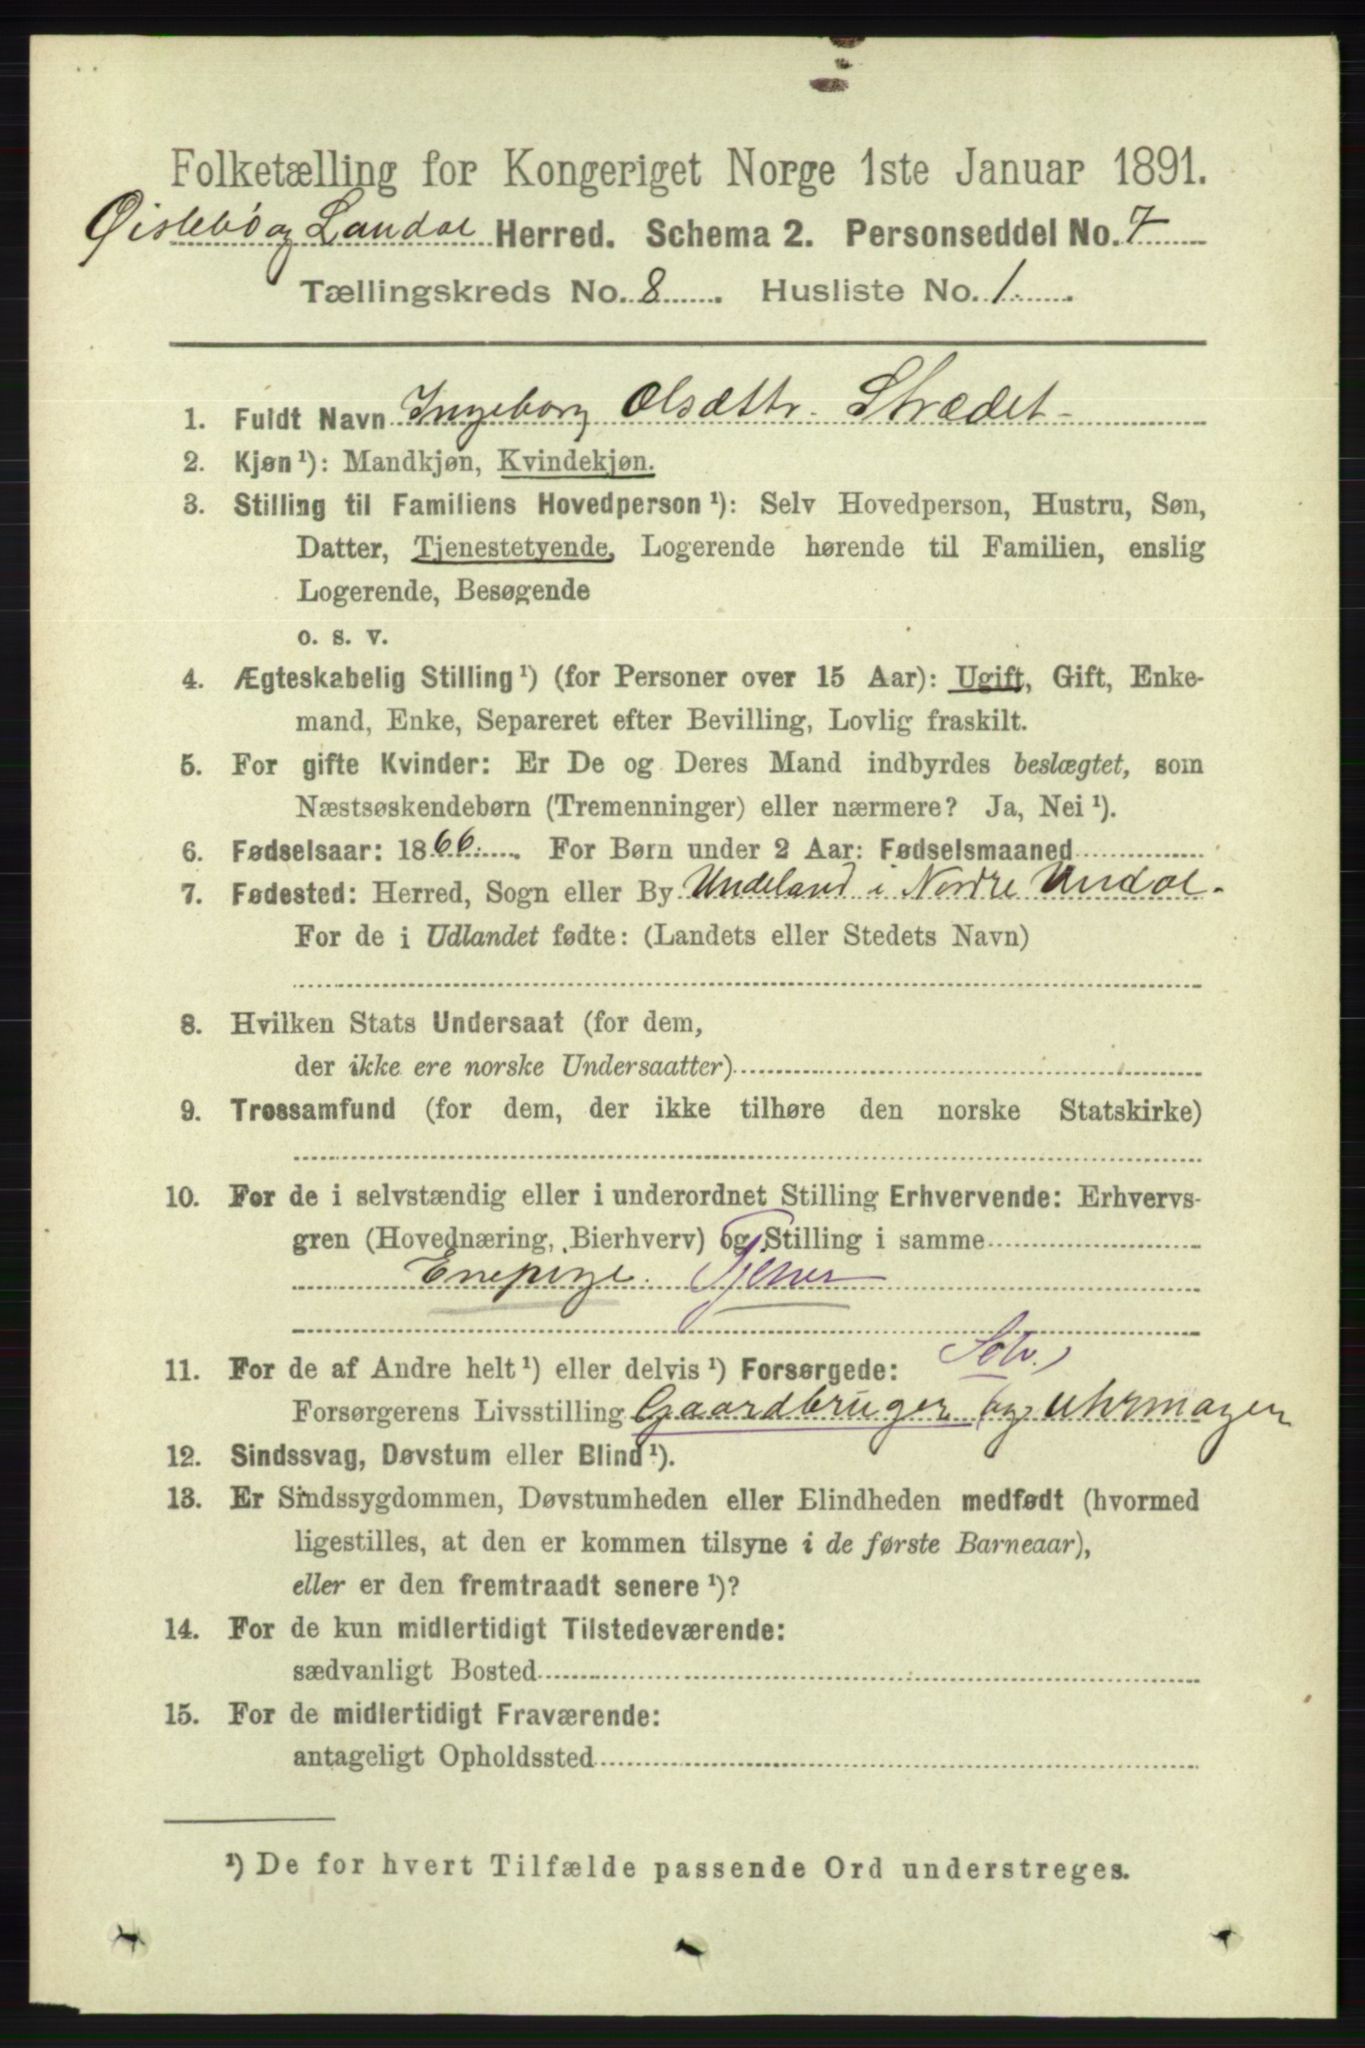 Folketælling for Kongeriget Norge 1ste Januar 1891.
Øislebö og Laudal Herred. Schema 2. Personseddel No. 7
Tællingskreds No. 8. Husliste No. 1.
1. Fuldt Navn Ingeborg Olsdttr. Strædet-
2. Kjøn ¹): Mandkjøn, Kvindekjøn.
3. Stilling til Familiens Hovedperson ¹): Selv Hovedperson, Hustru, Søn,
Datter, Tjenestetyende, Logerende hørende til Familien, enslig
Logerende, Besøgende
o. s. v.
4. Ægteskabelig Stilling ¹) (for Personer over 15 Aar): Ugift, Gift, Enke-
mand, Enke, Separeret efter Bevilling, Lovlig fraskilt.
5. For gifte Kvinder: Er De og Deres Mand indbyrdes beslægtet, som
Næstsøskendebørn (Tremenninger) eller nærmere? Ja, Nei ¹).
6. Fødselsaar: 1866. For Børn under 2 Aar: Fødselsmaaned
7. Fødested: Herred, Sogn eller By Undeland i Nordre Undal.
For de i Udlandet fødte: (Landets eller Stedets Navn)
8. Hvilken Stats Undersaat (for dem,
der ikke ere norske Undersaatter)
9. Trossamfund (for dem, der ikke tilhøre den norske Statskirke)
10. For de i selvstændig eller i underordnet Stilling Erhvervende: Erhvervs-
gren (Hovednæring, Bierhverv) og Stilling i samme
Enepige. Tjener
11. For de af Andre helt ¹) eller delvis ¹) Forsørgede: Selv.)
Forsørgerens Livsstilling Gaardbruger (og uhrmager
12. Sindssvag, Døvstum eller Blind ¹).
13. Er Sindssygdommen, Døvstumheden eller Blindheden medfødt (hvormed
ligestilles, at den er kommen tilsyne i de første Barneaar),
eller er den fremtraadt senere ¹)?
14. For de kun midlertidigt Tilstedeværende:
sædvanligt Bosted
15. For de midlertidigt Fraværende:
antageligt Opholdssted
¹) De for hvert Tilfælde passende Ord understreges.